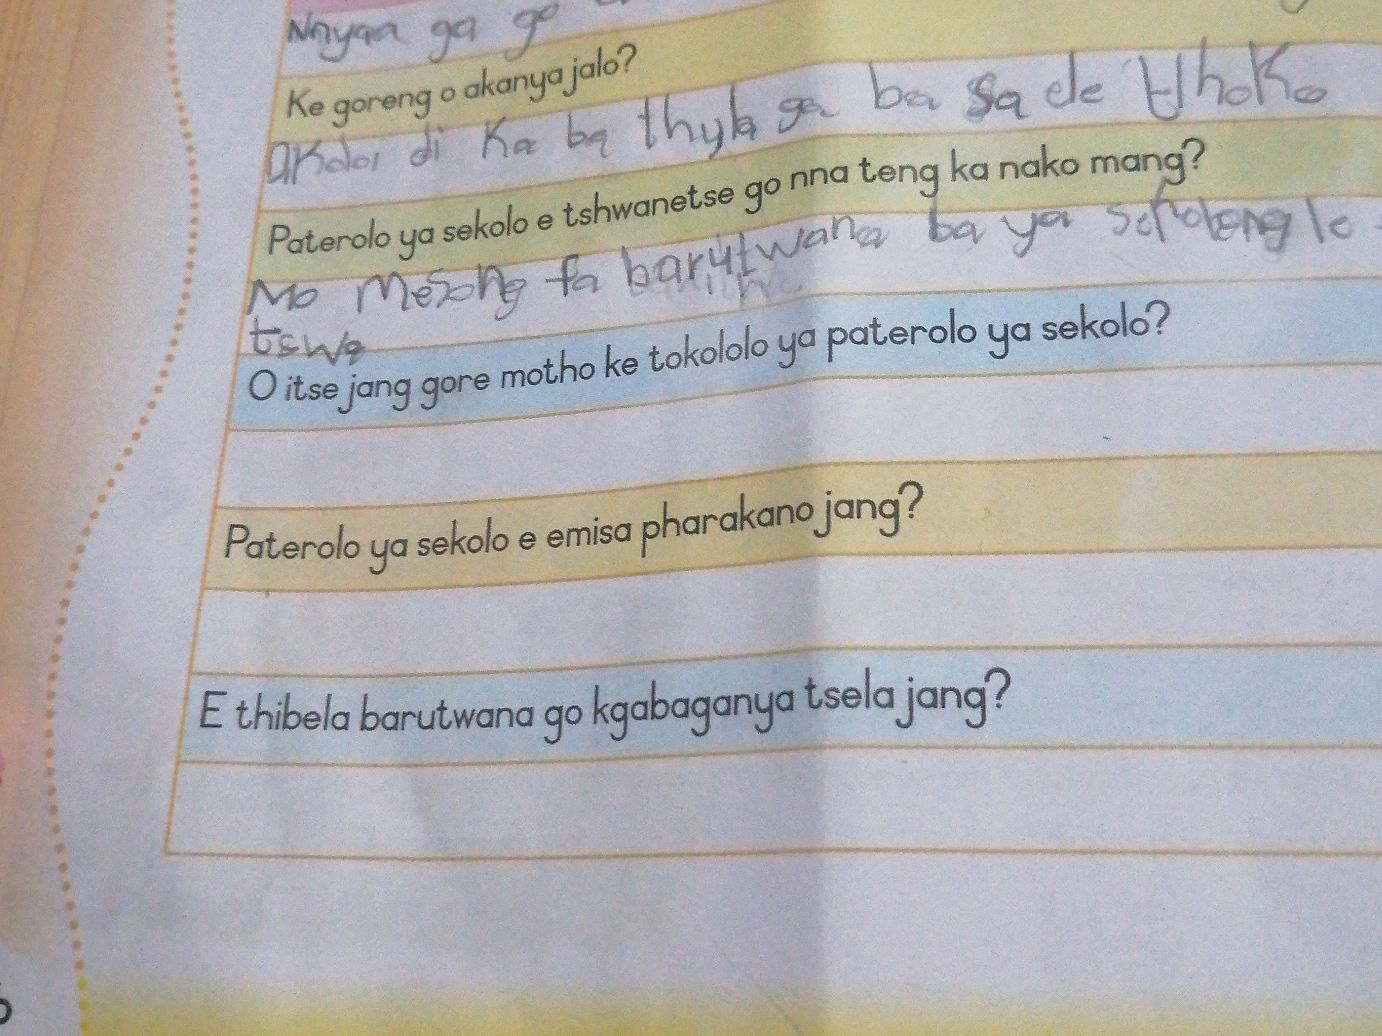 Nnyaa ga go
Ke goreng o akanya jalo?
di ka ba thula ga ba sa ele tlhoko
Paterolo ya sekolo e tshwanetse go nna teng ka nako mang?
Mo Mesong fa barutwana ba ya sekolong le
tswa
O itse jang gore motho ke tokololo ya paterolo ya sekolo?
Paterolo ya sekolo e emisa pharakano jang?
E thibela barutwana go kgabaganya tsela jang?